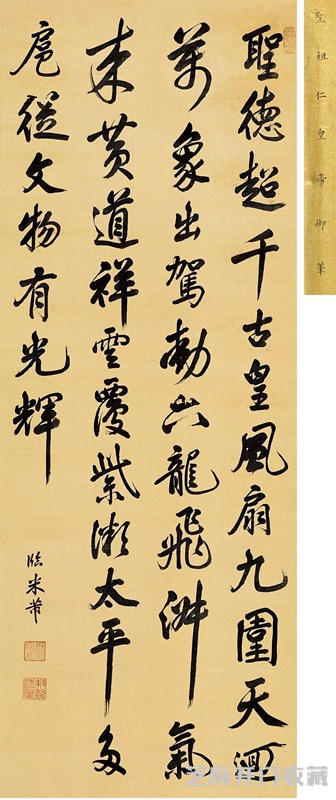 聖祖仁皇帝御筆
聖德超千古皇風扇九圍天迴
萬象出駕動六龍飛淑氣
来黄道祥雲覆紫微太平多
扈從文物有光輝
臨米芾